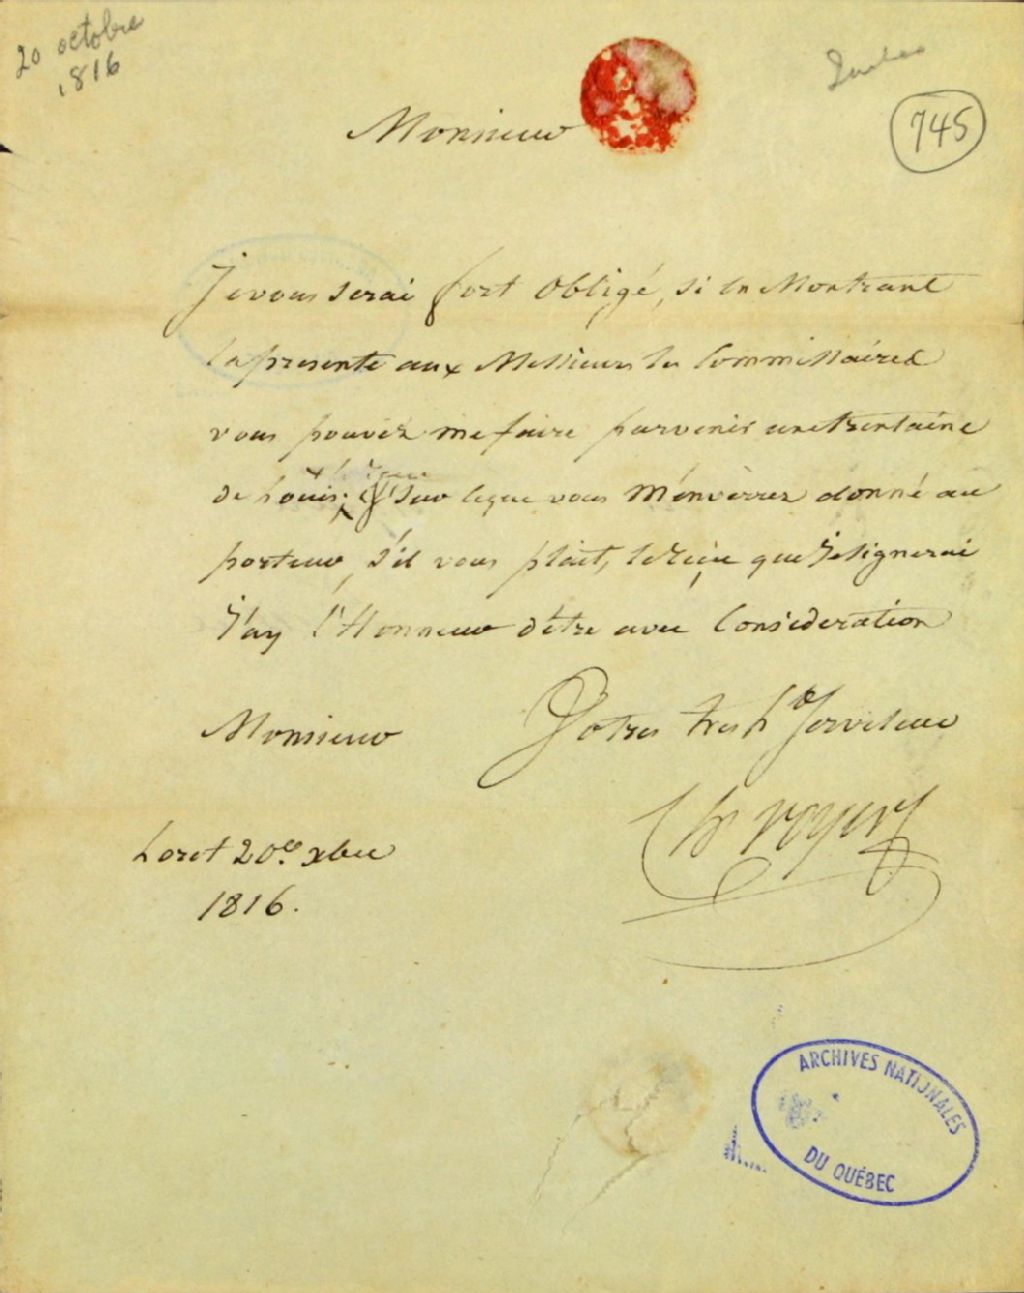 20 octobre
1816
Quebec
745
Monsieur
Je vous serai fort Obligé, si en Montrant
la presente aux Messieurs les Commissaires
vous pouvez me faire parvenir une trentaine
de Loüis; Sur leque vous m'enverrez donné au
porteur, s'il vous plait, le reçu que Je signerai
J'ay l'Honneur d'être avec Consideration
Monsieur Votres tres h.
Serviteur
Ch voyer
Loret 20.ce xbre
1816.
ARCHIVES NATIONALES
DU QUÉBEC